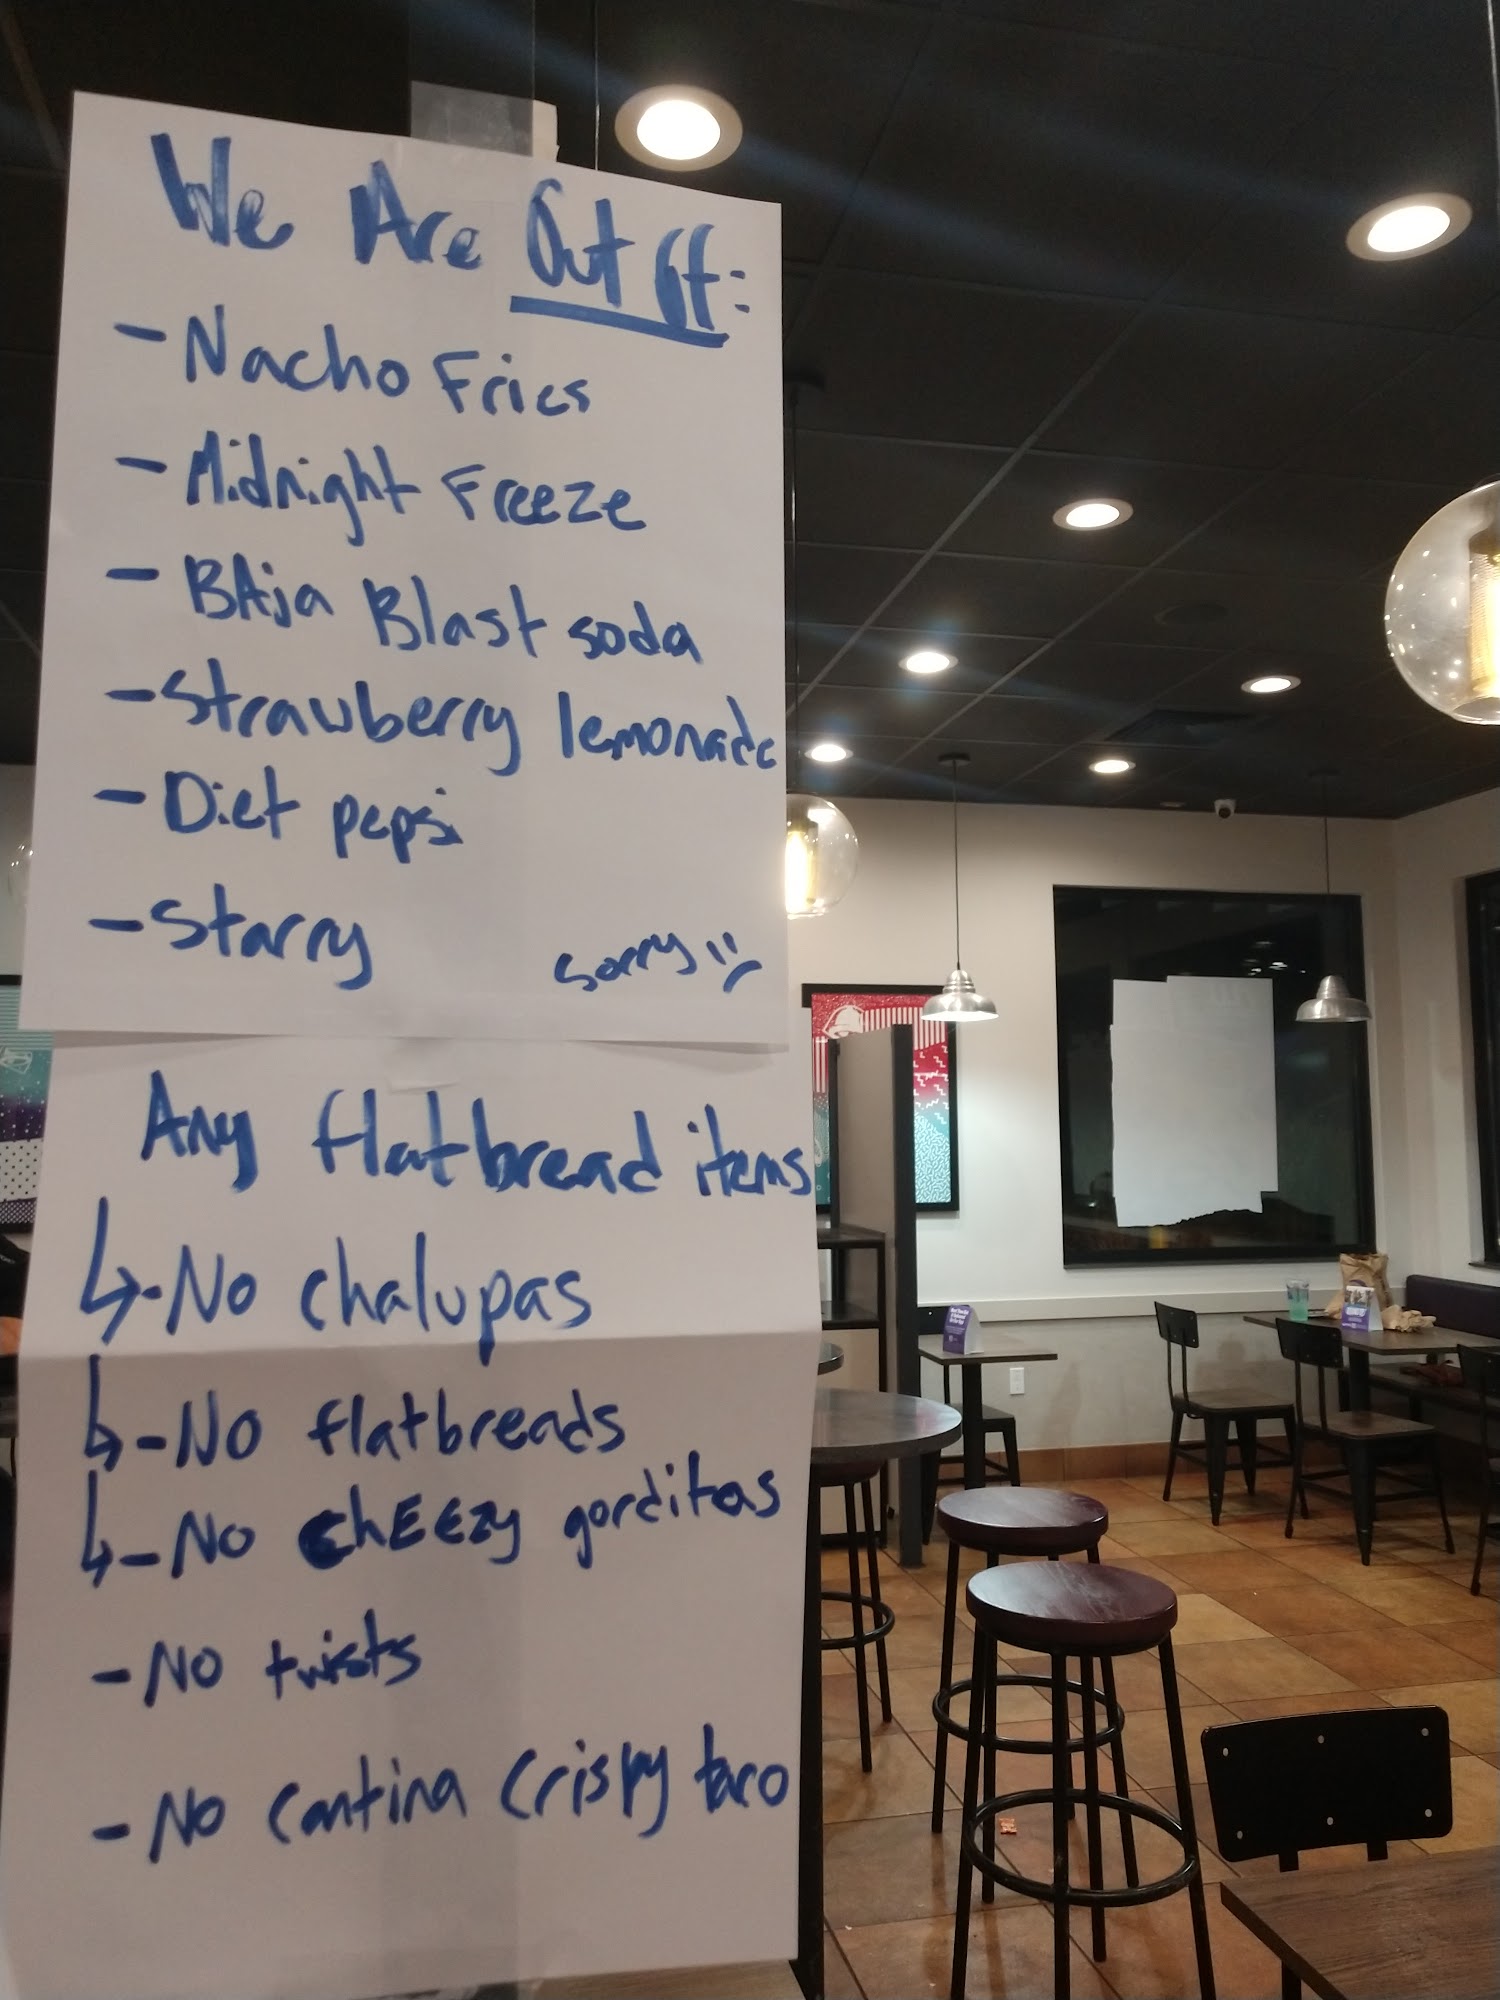 We Are Out of:
- Nacho Fries
- Midnight Freeze
- BAja Blast soda
- Strawberry lemonade
- Diet pepsi
- Starry
sorry
Any flatbread items
- No chalupas
- No flatbreads
- No chEEzy gorditas
- No twists
- No cantina crispy taco